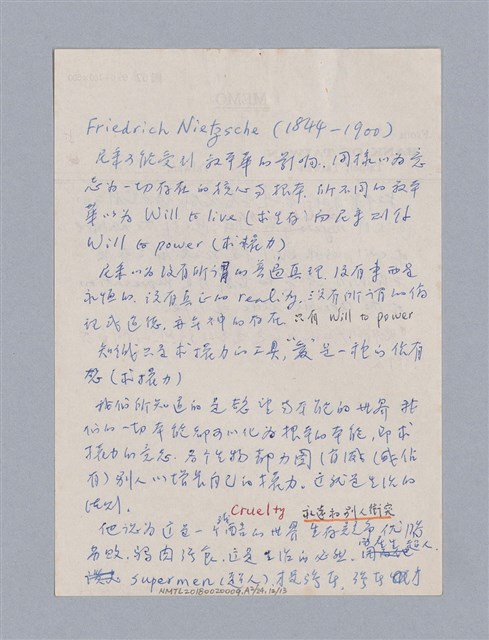 MEMO
Friedrich Nietzsche (1844－1900)
尼采可能受到叔本華的影响，同樣以為意
志為一切存在的核心与根本，所不同的叔本
華以為 Will to live (求生存) 而尼采則作
Will to power (求權力)
尼采以為没有所謂的普遍真理，没有事而是
永恒的，没有真正的 reality，没有所謂的
道德，神的存在 只有 Will to power
知識只是求權力的工具，"愛"是一種的佔有
慾 (求權力)
我們所知道的是慾望与本能的世界 我
們的一切本能都可以化為根本的本能，即求
權力的意志。各个生物都力圖消滅(或佔
有)別人以增長自己的權力。这就是生活的
法則。
Cruelty 永遠和別人衝突
他認為这是一殘酷的世界 生存競争，优勝
劣敗，弱肉强食，这是生活的必然。超人，
supermen (超人) 才是强本，强本
NMTL20180020009,A3/24,12/13